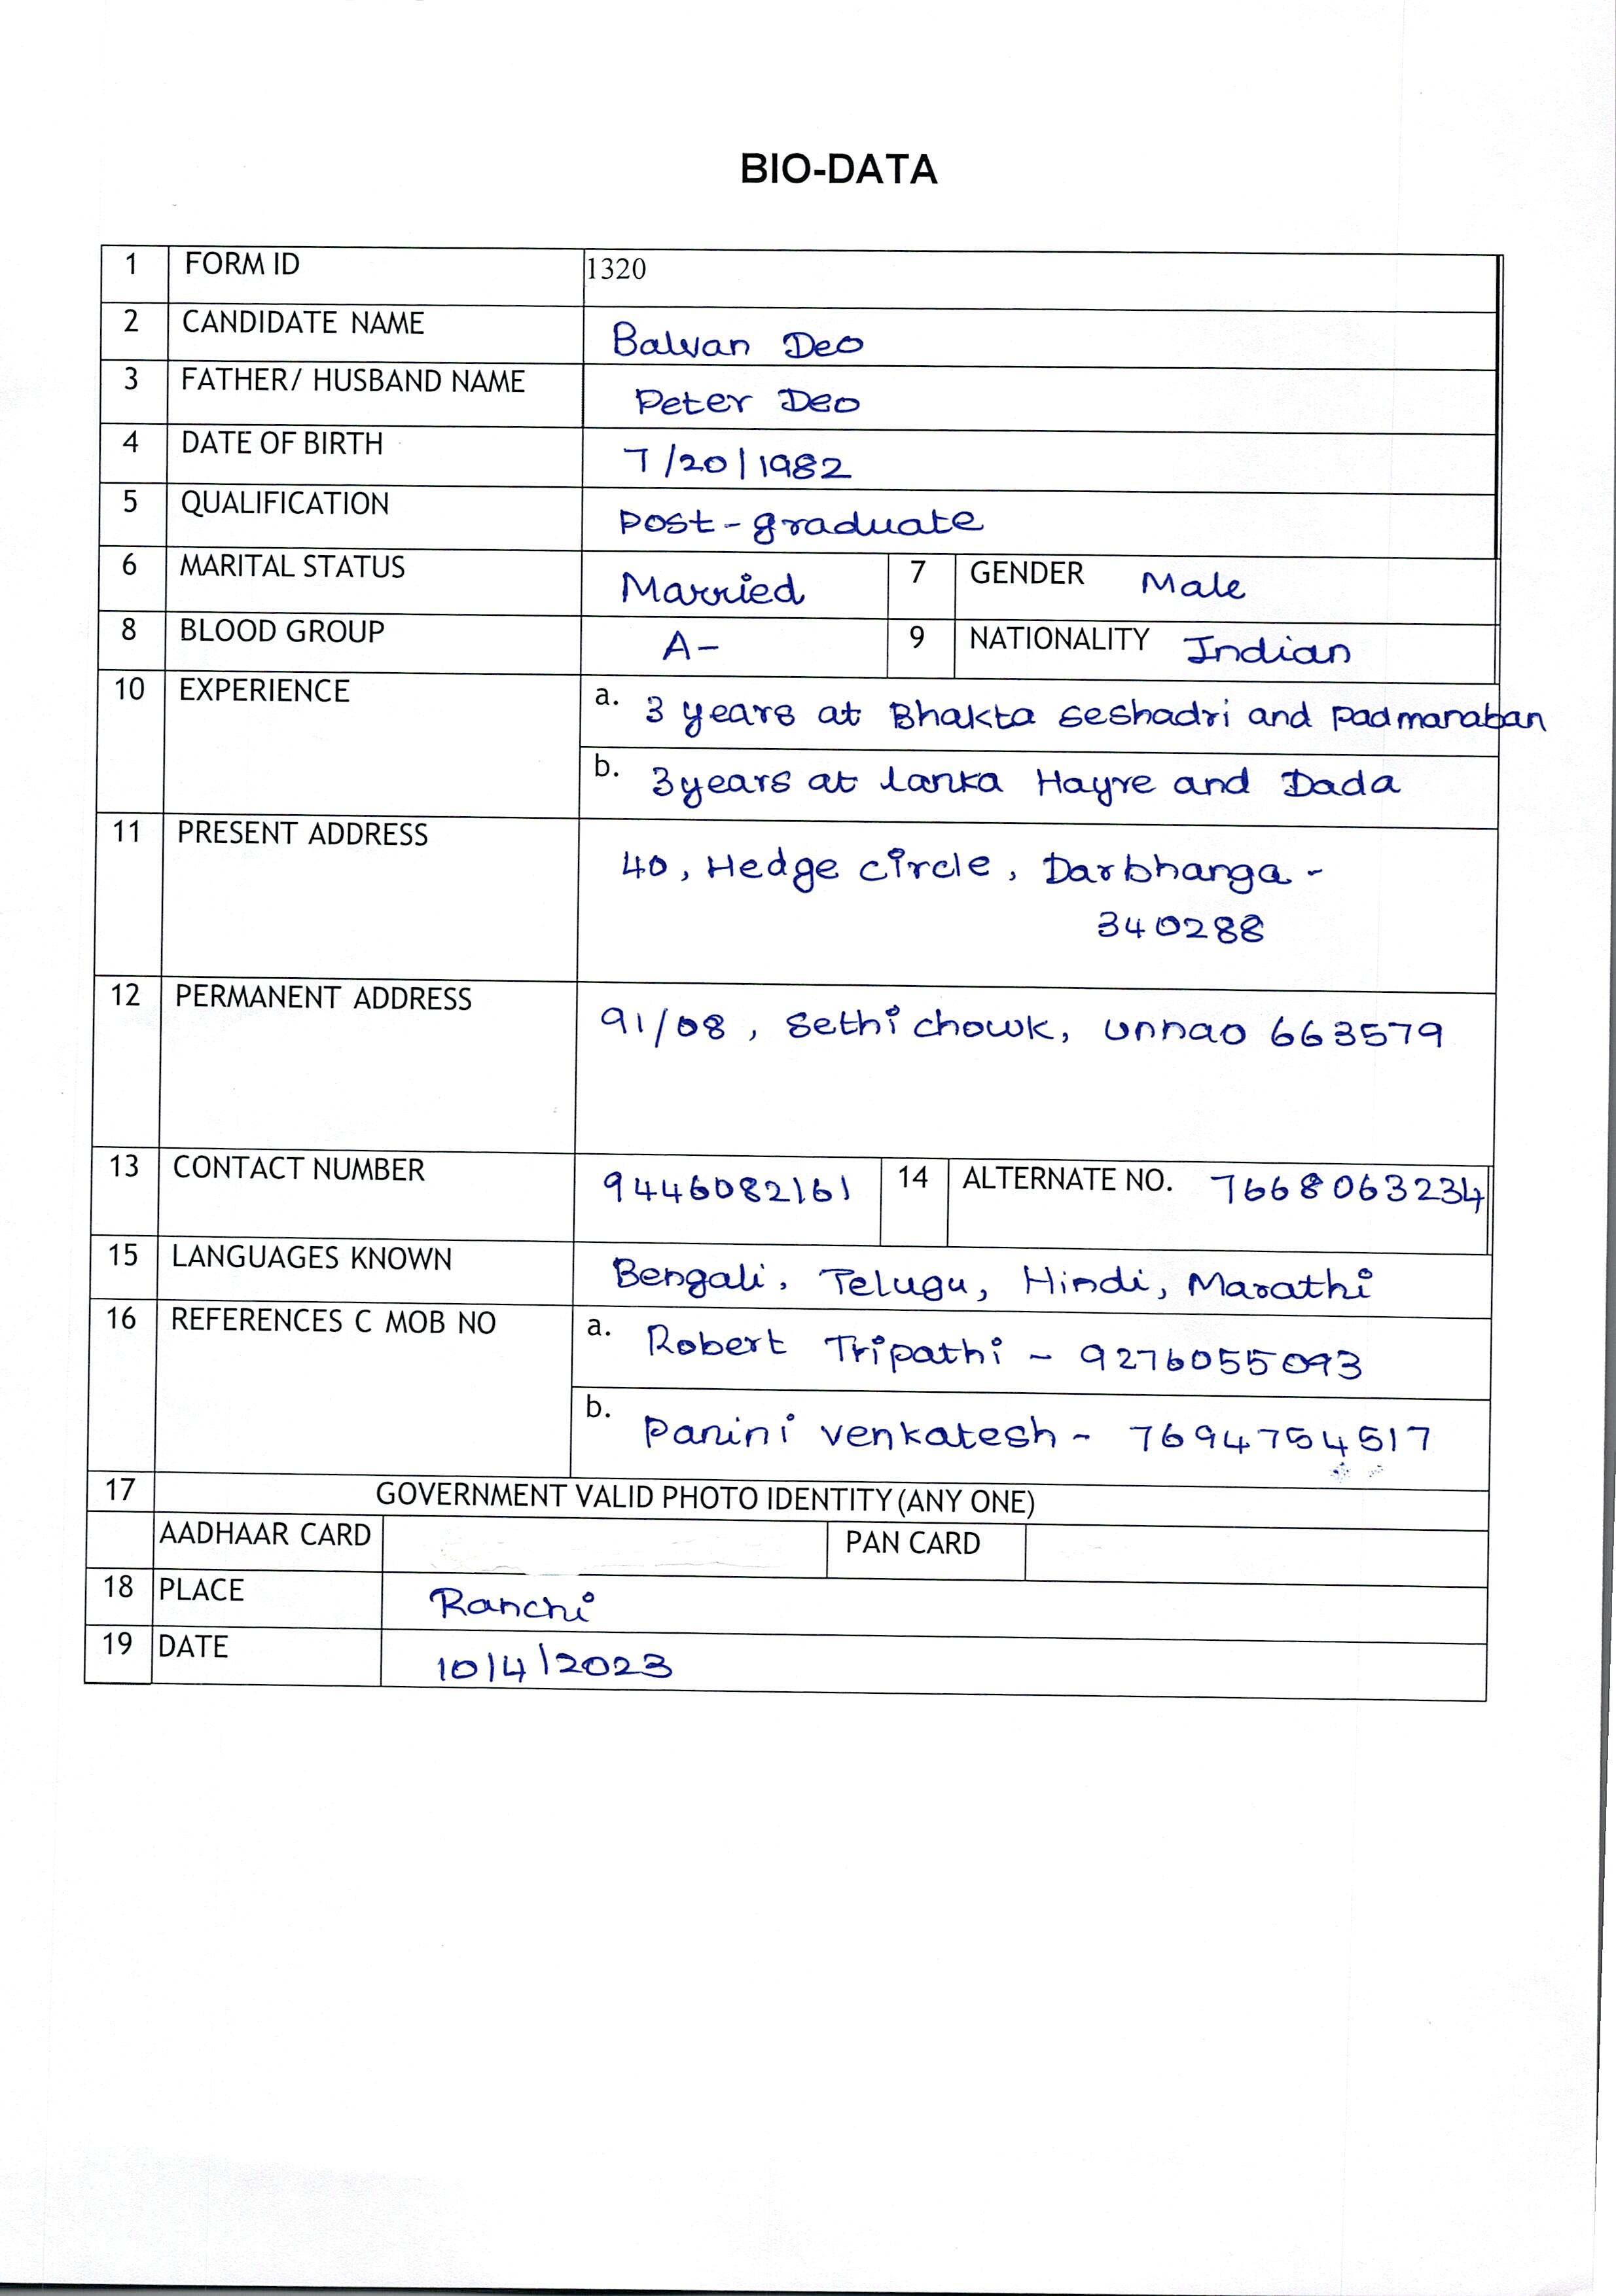 BIO-DATA
1 FORM ID 1320
2 CANDIDATE NAME Balvan Deo
3 FATHER/ HUSBAND NAME Peter Deo
4 DATE OF BIRTH 7/20/1982
5 QUALIFICATION Post-graduate
6 MARITAL STATUS Married 7 GENDER Male
8 BLOOD GROUP A- 9 NATIONALITY Indian
10 EXPERIENCE a. 3 years at Bhakta Seshadri and Padmanaban
b. 3 years at Lanka Hayre and Dada
11 PRESENT ADDRESS 40, Hedge circle, Darbhanga -
340288
12 PERMANENT ADDRESS 91/08, Sethi chowk, Unnao 663579
13 CONTACT NUMBER 9446082161 14 ALTERNATE NO. 7668063234
15 LANGUAGES KNOWN Bengali, Telugu, Hindi, Marathi
16 REFERENCES C MOB NO a. Robert Tripathi - 9276055093
b. Panini Venkatesh - 7694754517
17 GOVERNMENT VALID PHOTO IDENTITY (ANY ONE)
AADHAAR CARD PAN CARD
18 PLACE Ranchi
19 DATE 10/4/2023